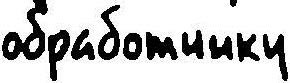 обработчику